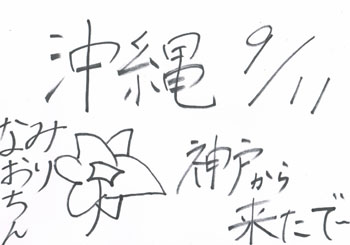 沖縄 9/11
みり
なおちん
神戸から
来たで〜